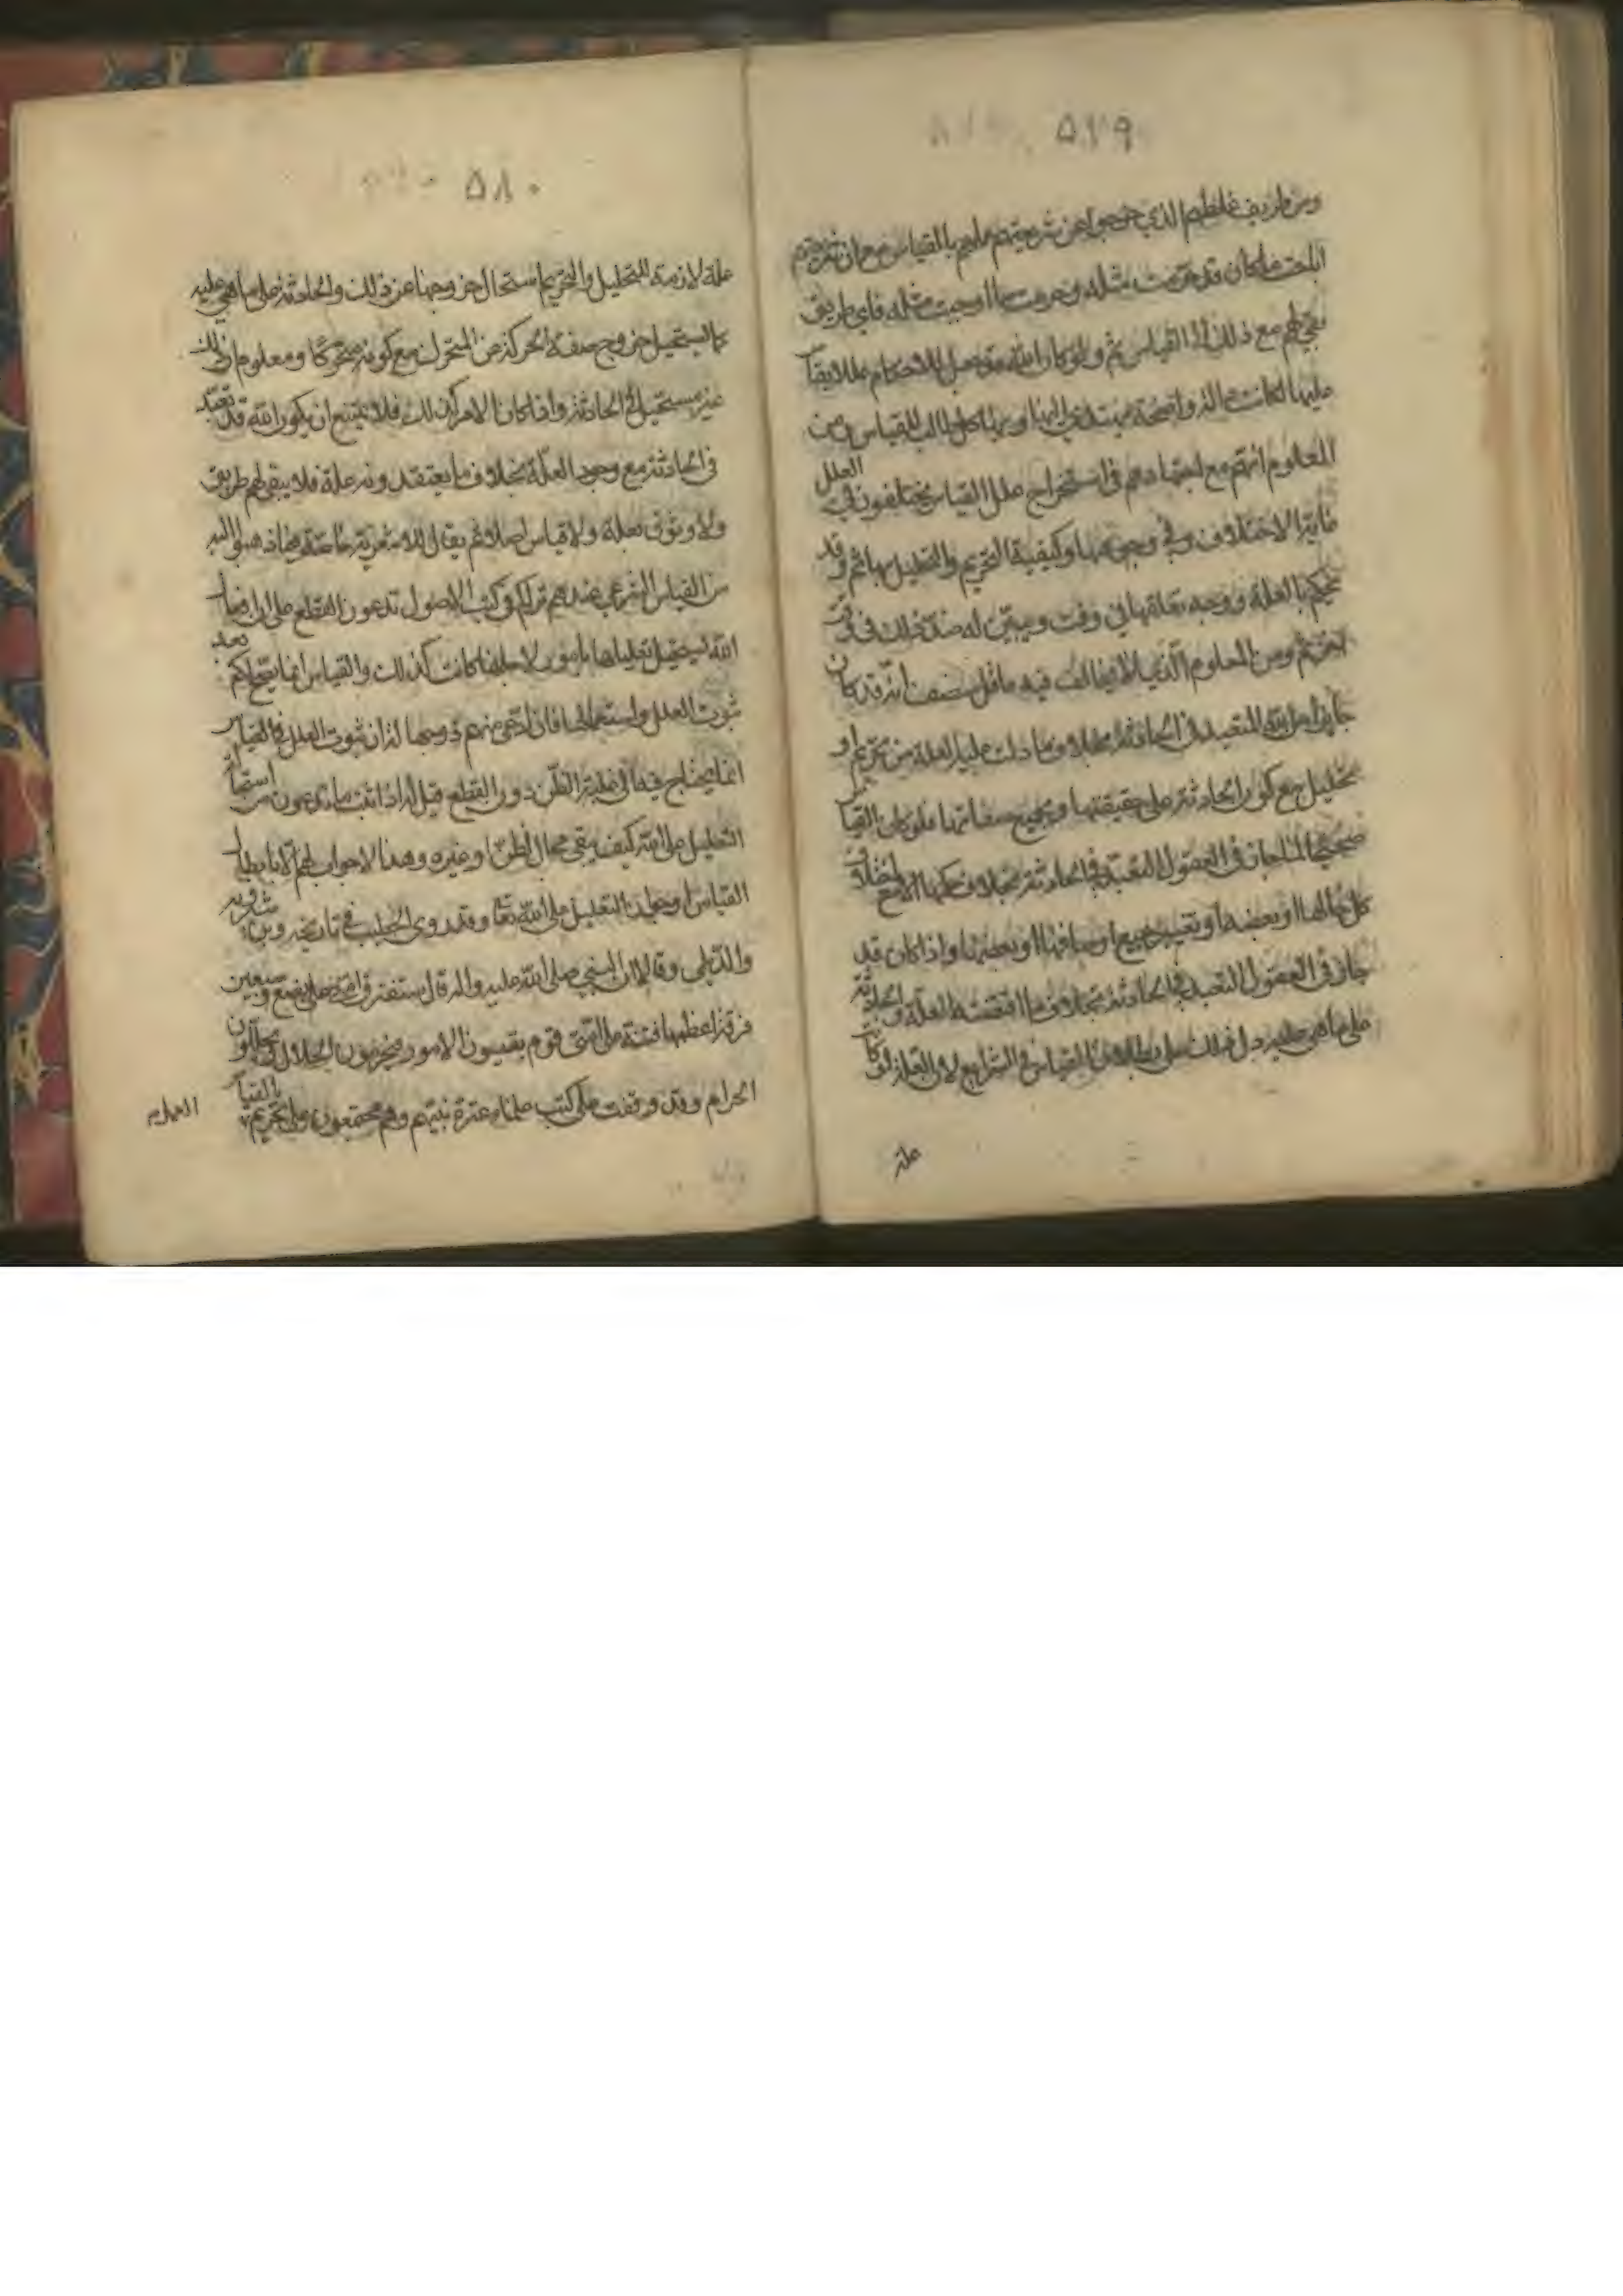 ٥٧٩
ومن طريف غلطهم الذي خرجوا عن شريعتهم عليهم بالقياس مع ان شريعتهم
اباحت ما كان قد حرمت مثله وحرمت ما اوجبت مثله فاي طريق
بقي لهم مع ذلك الى القياس ثم ولو كان الله قد جعل للاحكام عللا يقاس
عليها لكانت عليه ادلة واضحة يهتدي اليها كل طالب للقياس ومن
المعلوم انهم مع اجتهادهم في استخراج علل القياس يختلفون في العلل
غاية الاختلاف وفي وجوهها وكيفية التحريم والتحليل بها ثم وقد
يحكم بالعلة ووجه تعلقها في وقت ويبين له ضد ذلك في وقت
آخر ثم ومن المعلوم الذي لا يخالف فيه عاقل منصف انه قد كان
جايزا من الله التعبد في الحادثة بخلاف ما دلت عليه العلة من تحريم او
تحليل مع كون الحادثة على حقيقتها وجميع صفاتها فلو كان القياس
صحيحا لما جاز في العقول التعبد في الحادثة بخلاف حكمها الا مع اختلاف
كل حالها او بعضها وتغيير جميع اوصافها او بعضها واذا كان قد
جاز في العقول التعبد في الحادثة بخلاف ما اقتضته العلة والحادثة
على ما هي عليه دل ذلك على بطلان القياس في الشرايع لان العلة لو كانت
علة
٥٨٠
علة لازمة للتحليل والتحريم استحال خروجها عن ذلك والحادثة على ما هي عليه
كما يستحيل خروج صفة الحركة عن المتحرك مع كونه متحركا ومعلوم ان ذلك
غير مستحيل في الحادثة واذا كان الامر كذلك فلا يمتنع ان يكون الله قد تعبد
في الحادثة مع وجود العلة بخلاف ما يعتقدونه علة فلا يبقى لهم طريق
ولا وثوق بعلة ولا قياس اصلا ثم يقال للاشعرية خاصة فيما ذهبوا اليه
من القياس الشرعي عندهم تراكم في كتب الاصول تدعون القطع على ان افعال
الله يستحيل تعليلها بامور لاجلها كانت كذلك والقياس انما يصح لكم بعد
ثبوت العلل واستعمالها فان ادعى منهم ذو وجها ان ثبوت العلل في القياس
انما يحتاج فيه الى غلبة الظن دون القطع قيل له اذا ثبت ما تدعون من استحالة
التعليل على الله كيف يبقى مجال لظن او غيره وهذا لا جواب لهم الا بابطال
القياس او تجويز التعليل على الله تعا وقد روى الخطيب في تاريخه وابن شيرويه
والديلمي وقالا ان النبي صلى الله عليه واله قال ستفترق امتي على بضع وسبعين
فرقة اعظمها فتنة على امتي قوم يقيسون الامور فيحرمون الحلال ويحللون
الحرام وقد وقفت على كتب علماء عترة نبيهم وهم مجمعون على تحريم العمل بالقياس